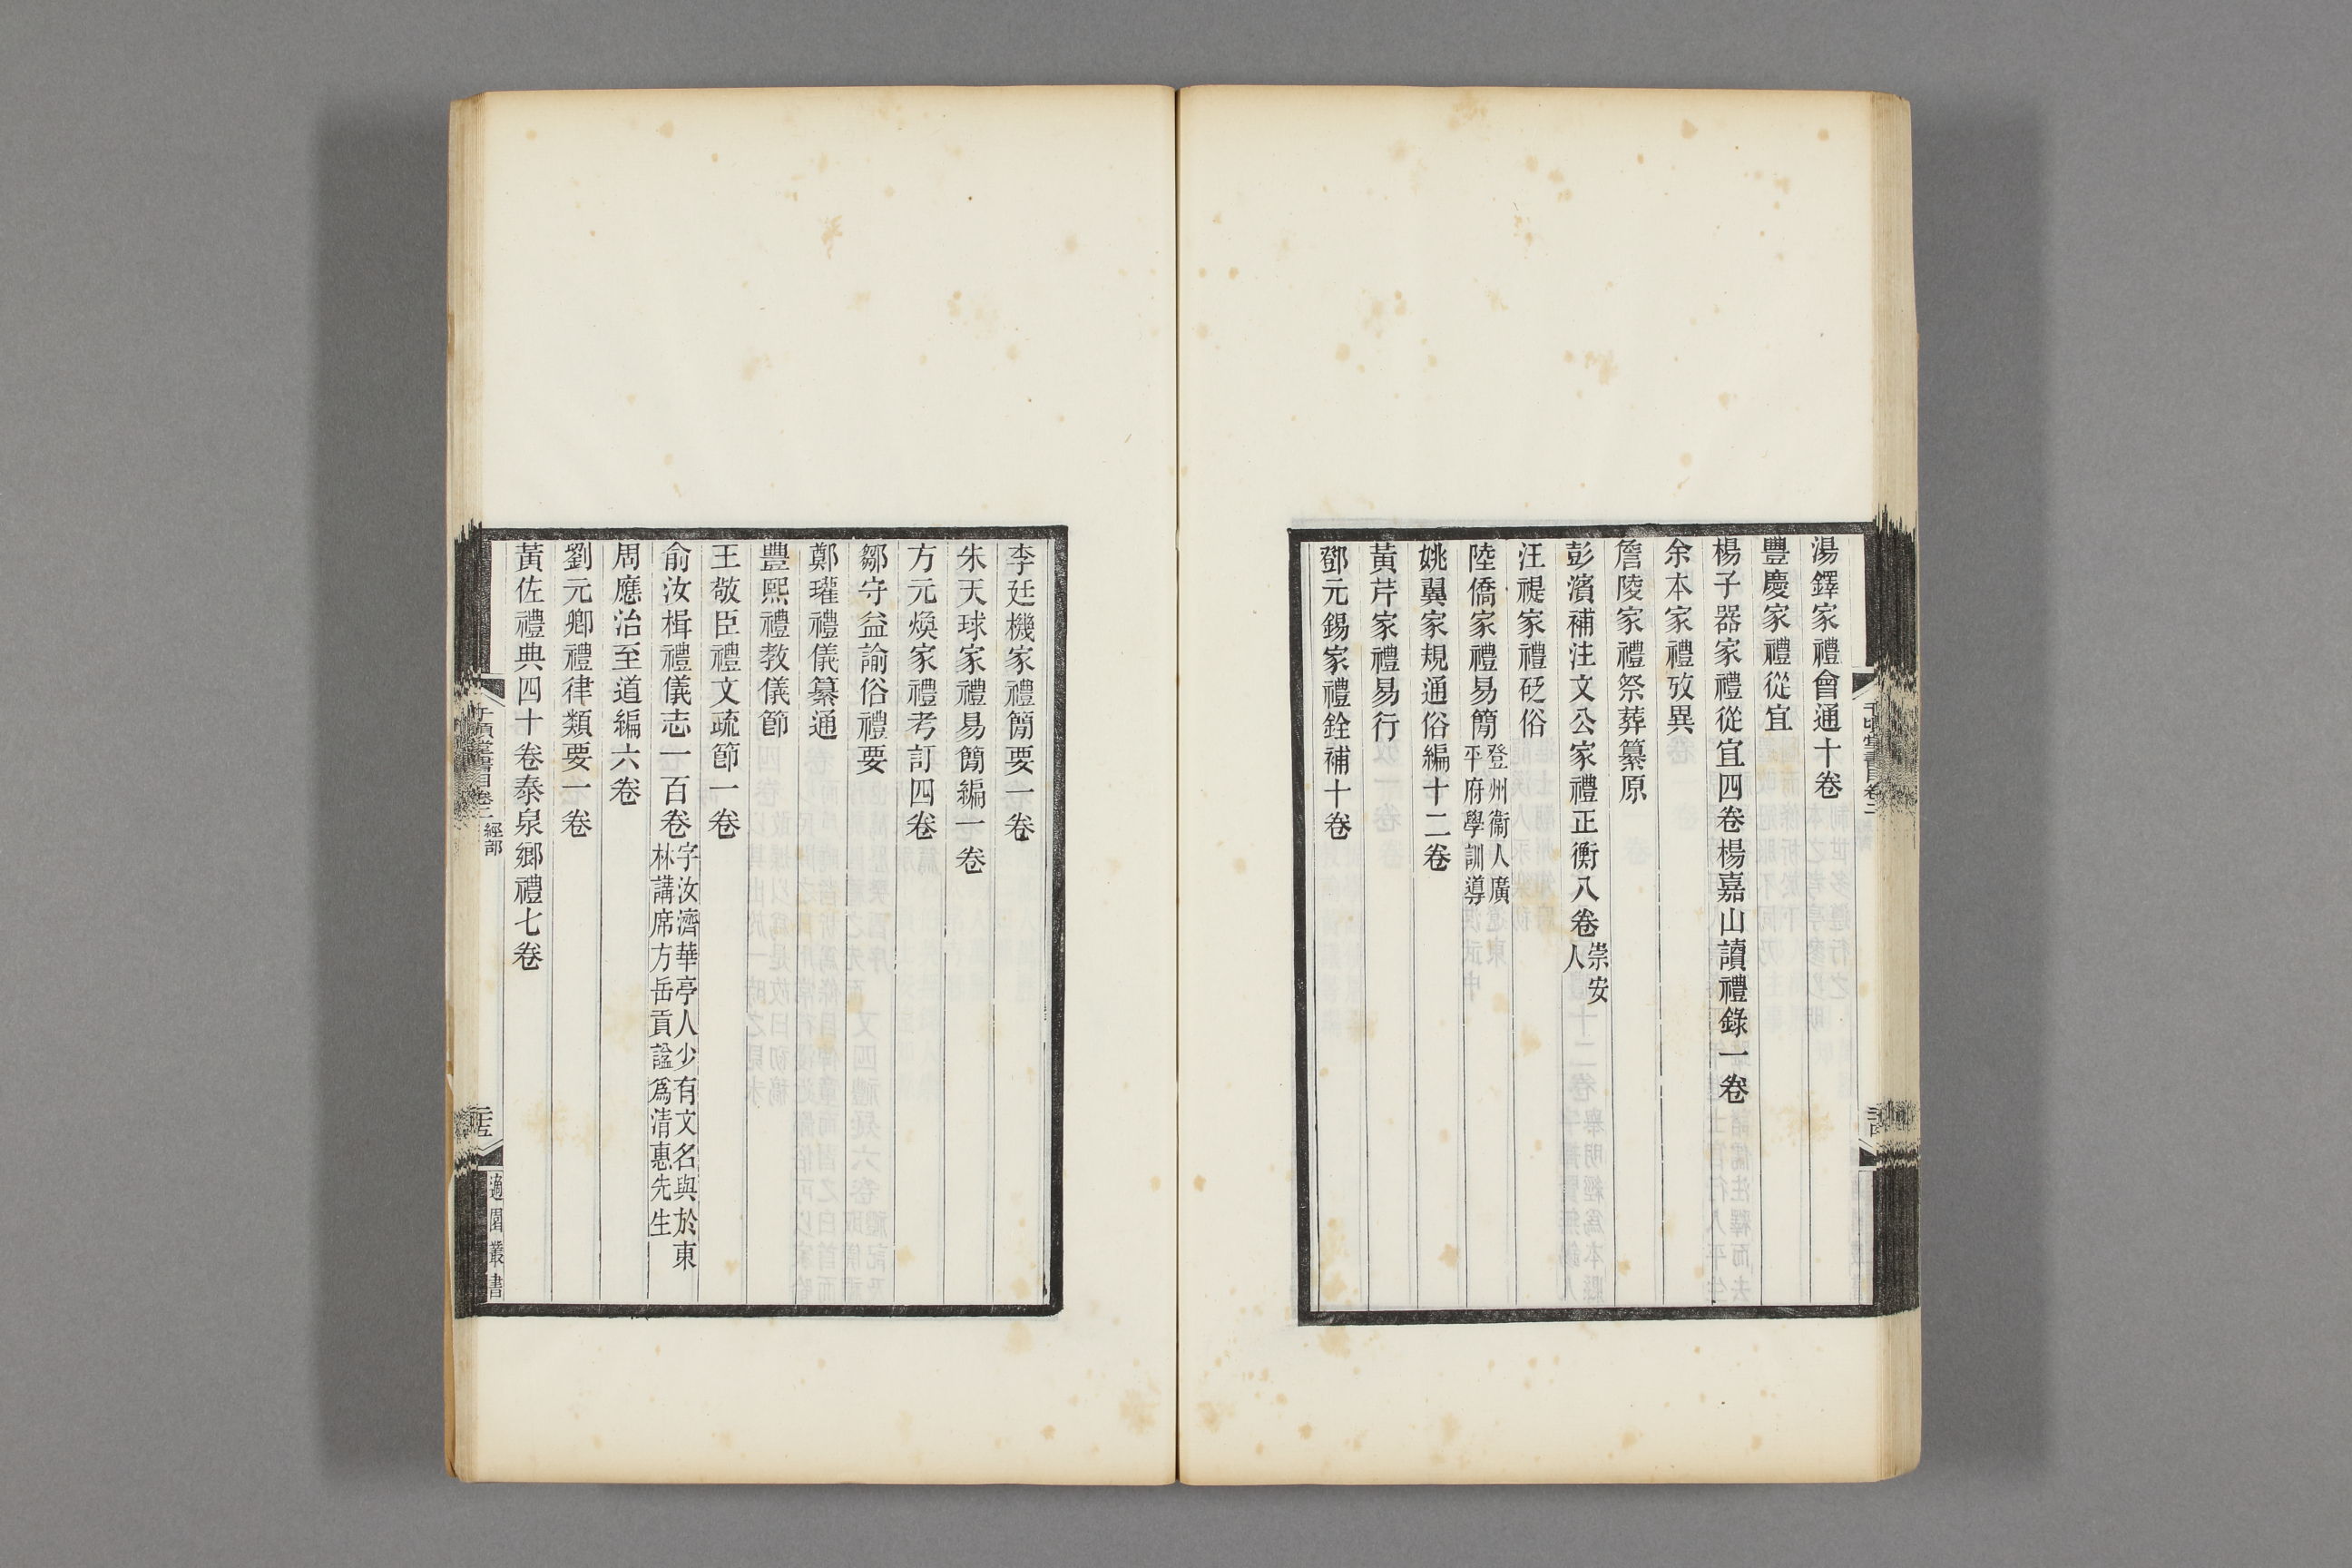 湯鐸家禮會通十卷
豐慶家禮從宜
楊子器家禮從宜四卷楊嘉山讀禮錄一卷
余本家禮攷異
詹陵家禮祭葬纂原
彭濱補注文公家禮正衡八卷崇安
人
汪禔家禮砭俗
陸僑家禮易簡登州衞人廣
平府學訓導
姚翼家規通俗編十二卷
黃芹家禮易行
鄧元錫家禮銓補十卷
千頃堂書目卷二
李廷機家禮簡要一卷
朱天球家禮易簡編一卷
方元煥家禮考訂四卷
鄒守益諭俗禮要
鄭瓘禮儀纂通
豐熙禮教儀節
王敬臣禮文疏節一卷
俞汝楫禮儀志一百卷字汝濟華亭人少有文名與於東
林講席方岳貢諡爲清惠先生
周應治至道編六卷
劉元卿禮律類要一卷
黃佐禮典四十卷泰泉鄉禮七卷
千頃堂書目卷二 經部
適園叢書